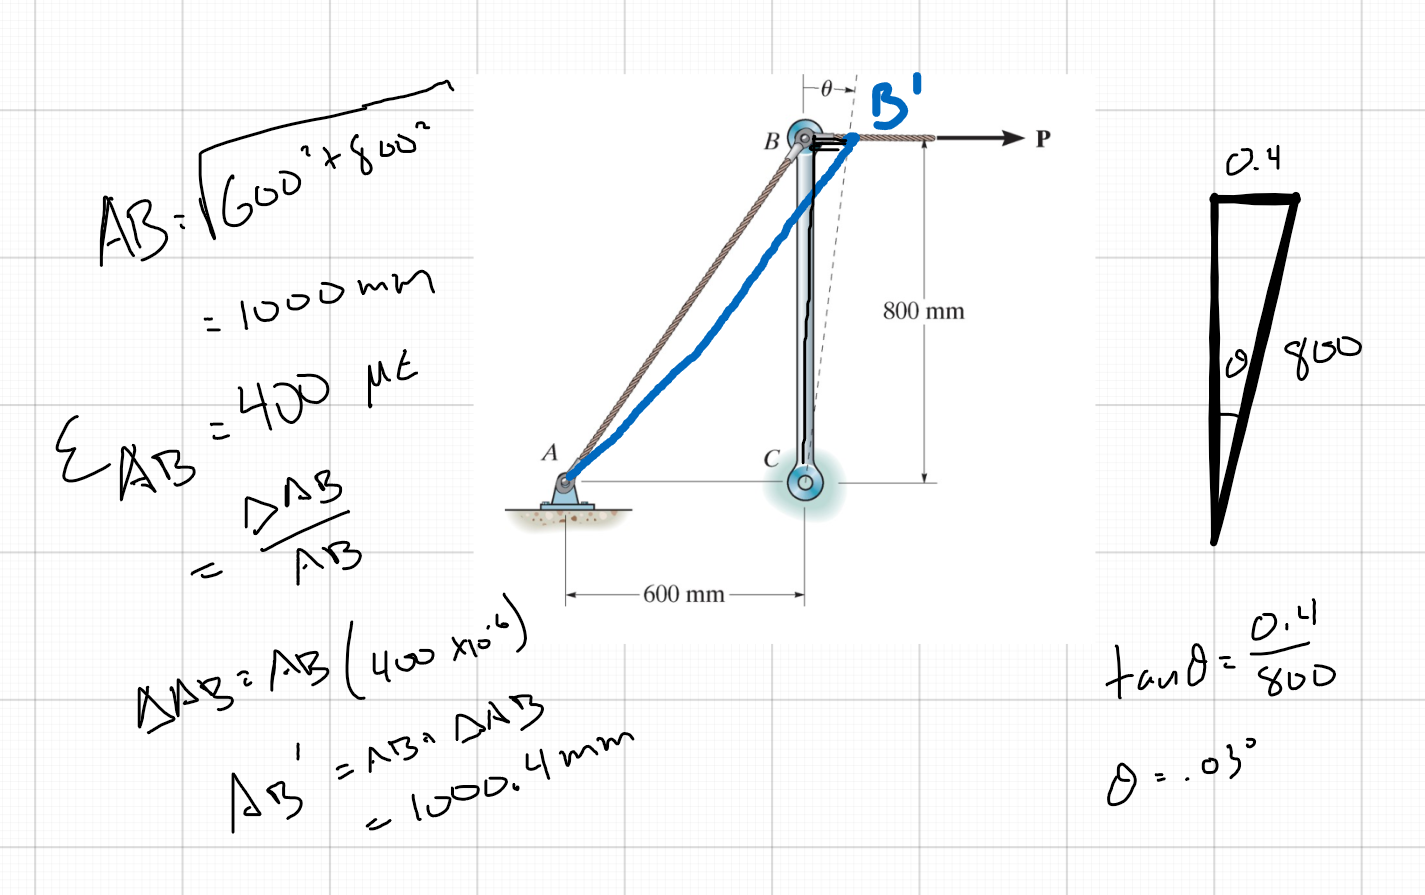 AB = √600² + 800²
= 1000 mm
ε AB = 400 με
= ΔAB / AB
ΔAB = AB (400 x10⁻⁶)
AB' = AB + ΔAB
= 1000.4 mm
θ
B'
B
P
800 mm
A
C
600 mm
0.4
θ
800
tanθ = 0.4 / 800
θ = .03°